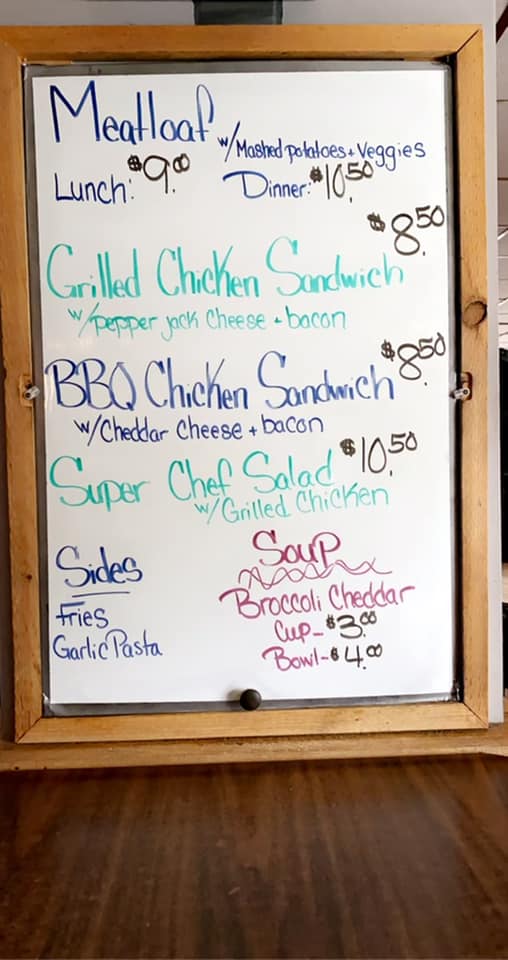 Meatloaf w/Mashed potatoes + Veggies
Lunch: $9.00 Dinner: $10.50
$8.50
Grilled Chicken Sandwich
w/pepper jack Cheese + bacon
$8.50
BBQ Chicken Sandwich
w/Cheddar Cheese + bacon
Super Chef Salad $10.50
w/Grilled Chicken
Sides
Fries
Garlic Pasta
Soup
Broccoli Cheddar
Cup - $3.00
Bowl - $4.00